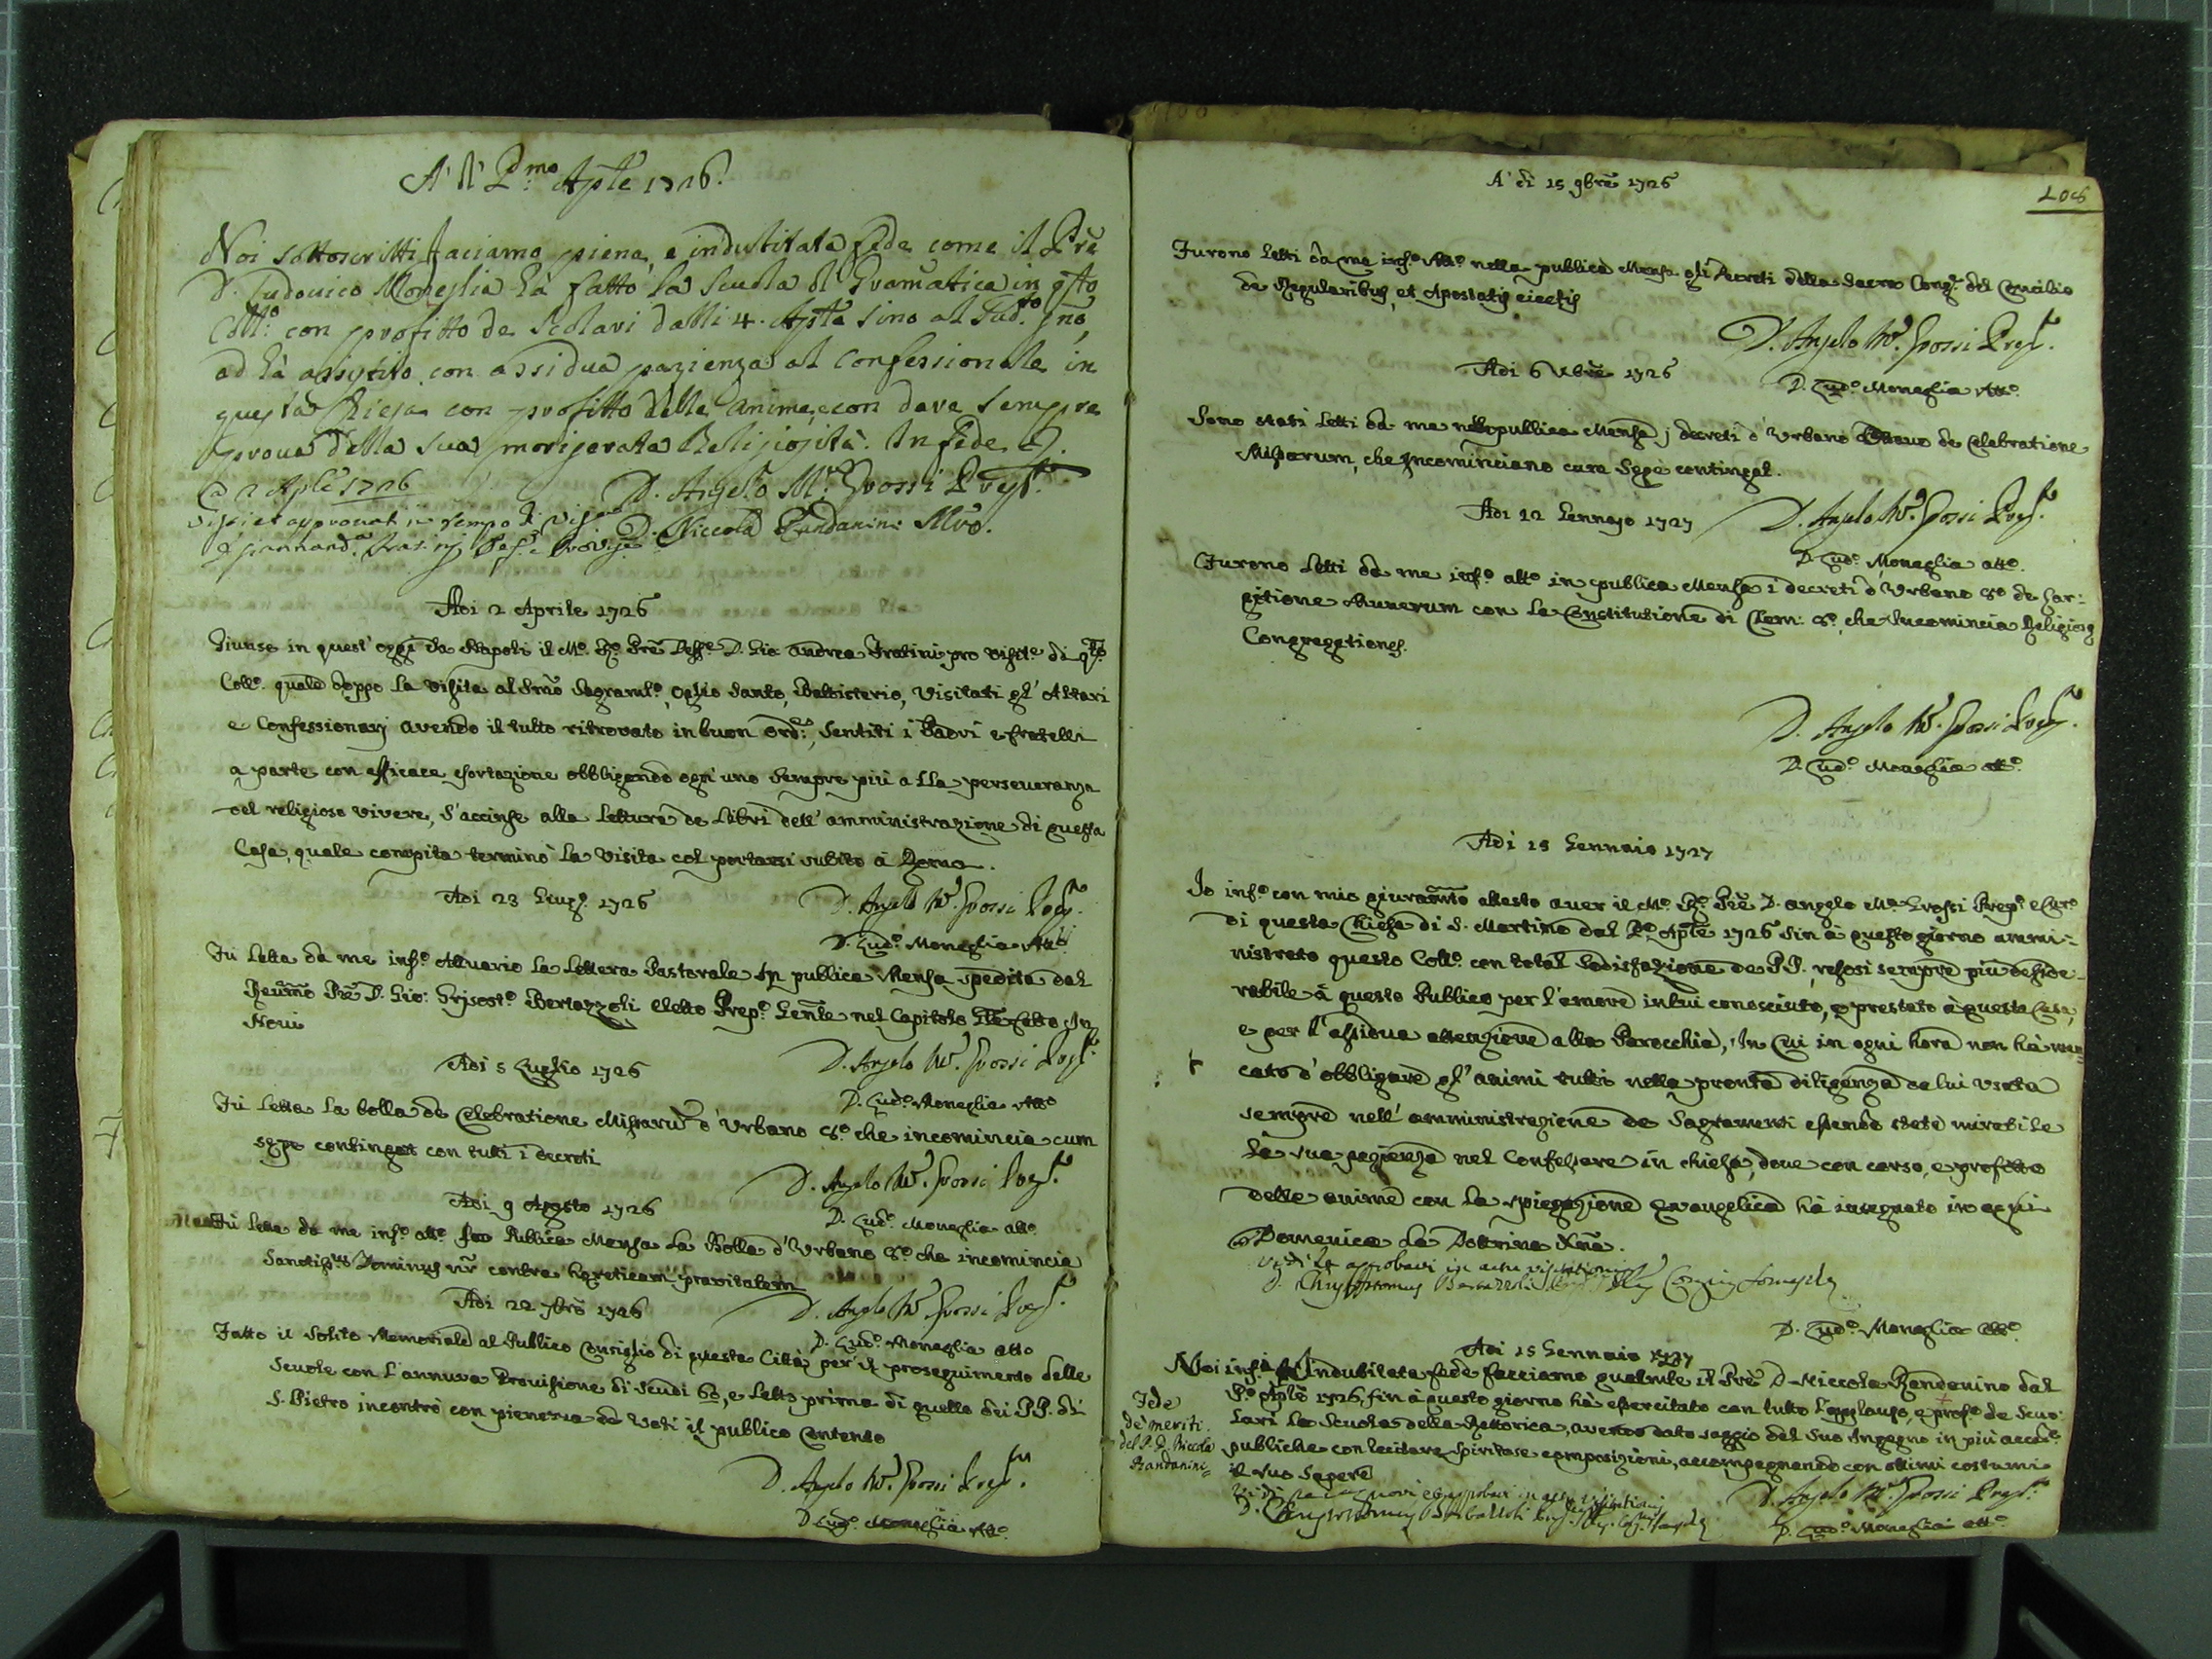 A' di P.mo Aple 1726.
Noi sottoscritti facciamo piena, e indubitata fede come il Prē
D. Ludovico Moneglia hà fatto la Scuola di Gramatica in qsto
Coll.o con profitto de Scolari dalli 4. Aple sino al sud.to
ed hà assistito con assidua pazienza al Confessionale in
questa Chiesa con profitto delle anime, e con dare sempre
prova della sua morigerata Religiosità. In fede &.
@ 2 Aple 1726 D. Angelo M.a Grossi Prep.to
D. Niccolà Randanini Attro.
Adi 2 Aprile 1726
Giunse in quest' oggi da Napoli il M.o R.o Prē D. Gio: Andrea Fratini pro visit.e di qsto
Coll.o quale doppo la visita al Smo Sagramto, Oglio Santo, Battisterio, visitati gl' Altari
e Confessionarj avendo il tutto ritrovato in buon ord:, sentiti i Padri e fratelli
a parte con efficace esortazione obbligando ogn' uno sempre più alla perseveranza
del religioso vivere, s'accinse alla lettura de Libri dell' amministrazione di questa
Casa, quale compita terminò la visita col portarsi subito à Roma.
D. Angelo M.a Grossi Prep.to
Adi 23 Giug.o 1726
D. Lud.o Moneglia Att.o
Fù letta da me inf.o Attuario la lettera Pastorale in publica Mensa spedita dal
Reumo Prē D. Gio: Grisost.o Bertazzoli eletto Prep.o Genle nel Capitolo In
Novi
D. Angelo M.a Grossi Prep.to
Adi 5 Luglio 1726
D. Lud.o Moneglia Att.o
Fù letta la bolla de Celebratione Missaru d' Urbano 8.o che incomincia cum
sepe contingat con tutti i decreti
D. Angelo M.a Grossi Prep.to
Adi 9 Agosto 1726
D. Lud.o Moneglia att.o
Fù letta da me inf.o att.o Publica Mensa la Bolla d' Urbano 8.o che incomincia
Sanctiss.us Dominus nr contra hereticam pravitatem
D. Angelo M.a Grossi Prep.to
Adi 22 7bre 1726
D. Lud.o Moneglia att.o
Fatto il solito Memoriale al Publico Consiglio di questa Città per il proseguimento delle
Scuole con l'annuva Provisione di Scudi 60, e letto prima di quello dei PP. di
S. Pietro incontrò con pienezza de Voti il publico Contento
D. Angelo M.a Grossi Prep.to
D. Lud.o Moneglia Att.o
A' di 15 9bre 1726
Furono letti da me inf.o Att.o nella publica Mensa gli Decreti della Sacra Cong.e del Concilio
de Regularibus, et Apostatis eiectis
D. Angelo M.a Grossi Prep.to
Adi 6 Xbre 1726
D. Lud.o Moneglia Att.o
Sono stati letti da me publica Mensa j decreti d' Urbano Ottavo de Celebratione
Missarum, che Incominciano cum Sepe contingat.
Adi 12 Gennajo 1727
D. Angelo M.a Grossi Prep.to
D. Lud.o Moneglia att.o
Furono letti da me inf.o att.o in publica Mensa i decreti d' Urbano 8.o de lar:
gitione Munerum con la Constitutione di Clem: 8.o che Incomincia Religiosę
Congregationes.
D. Angelo M.a Grossi Prep.to
D. Lud.o Moneglia att.o
Adi 15 Gennaio 1727
Io inf.o con mio giuramto attesto aver il M.o R.o Prē D. Angelo M.a Grossi Prep.o e Cur.o
di questa Chiesa di S. Martino dal P.o Aple 1726 sin à questo giorno ammi-
nistrato questo Coll.o con total sodisfazione de PP. resosi sempre più deside-
rabile à questo Publico per l'amore in lui conosciuto, e prestato à questa Casa,
e per l'assidua attenzione alla Parocchia, In Cui in ogni hora non hà man-
cato d' obbligare gl' animi tutti nella pronta diligenza da lui usata
sempre nell' amministrazione de Sagramenti essendo stata mirabile
la sua pazienza nel Confessare in chiesa, dove con corso, e profitto
delle anime con la spiegazione Evangelica hà insegnato in ogni
Domenica la Dottrina Xna.
Vidi et approbavi in actu visitationis
D. Chrysostomus Bertazzoli
D. Lud.o Moneglia Att.o
Adi 15 Gennaio 1727
Noi inf.i Indubitata fede facciamo qualmte il Prē D. Niccola Randanino dal
P.o Aple 1726, fin à questo giorno hà esercitato con tutto l'applauso, e prof.o de Scuo-
lari la Scuola della Rettorica, avendo dato saggio del suo Ingegno in più accad.e
publiche con recitare spiritose composizioni, accompagnando con ottimi costumi
il suo Sapere
Fede
de' meriti
del P. D. Niccola
Randanini
D. Angelo M.a Grossi Prep.to
D. Lud.o Moneglia att.o